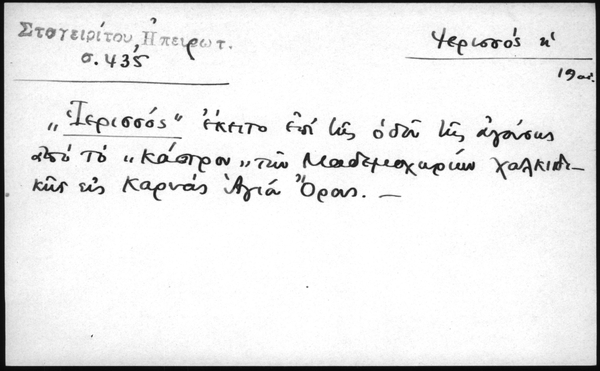 Σταγειρίτου, Ηπειρωτ.
σ. 435
Ιερισσός κ'
19ος
„Ἱερισσός" ἔκειτο ἐπί τῆς ὁδοῦ τῆς ἀγούσης
ἀπό τό „Κάστρον" τῶν Μαδεμοχωρίων Χαλκιδι-
κῆς εἰς Καρυάς Ἁγίου Ὄρους. —